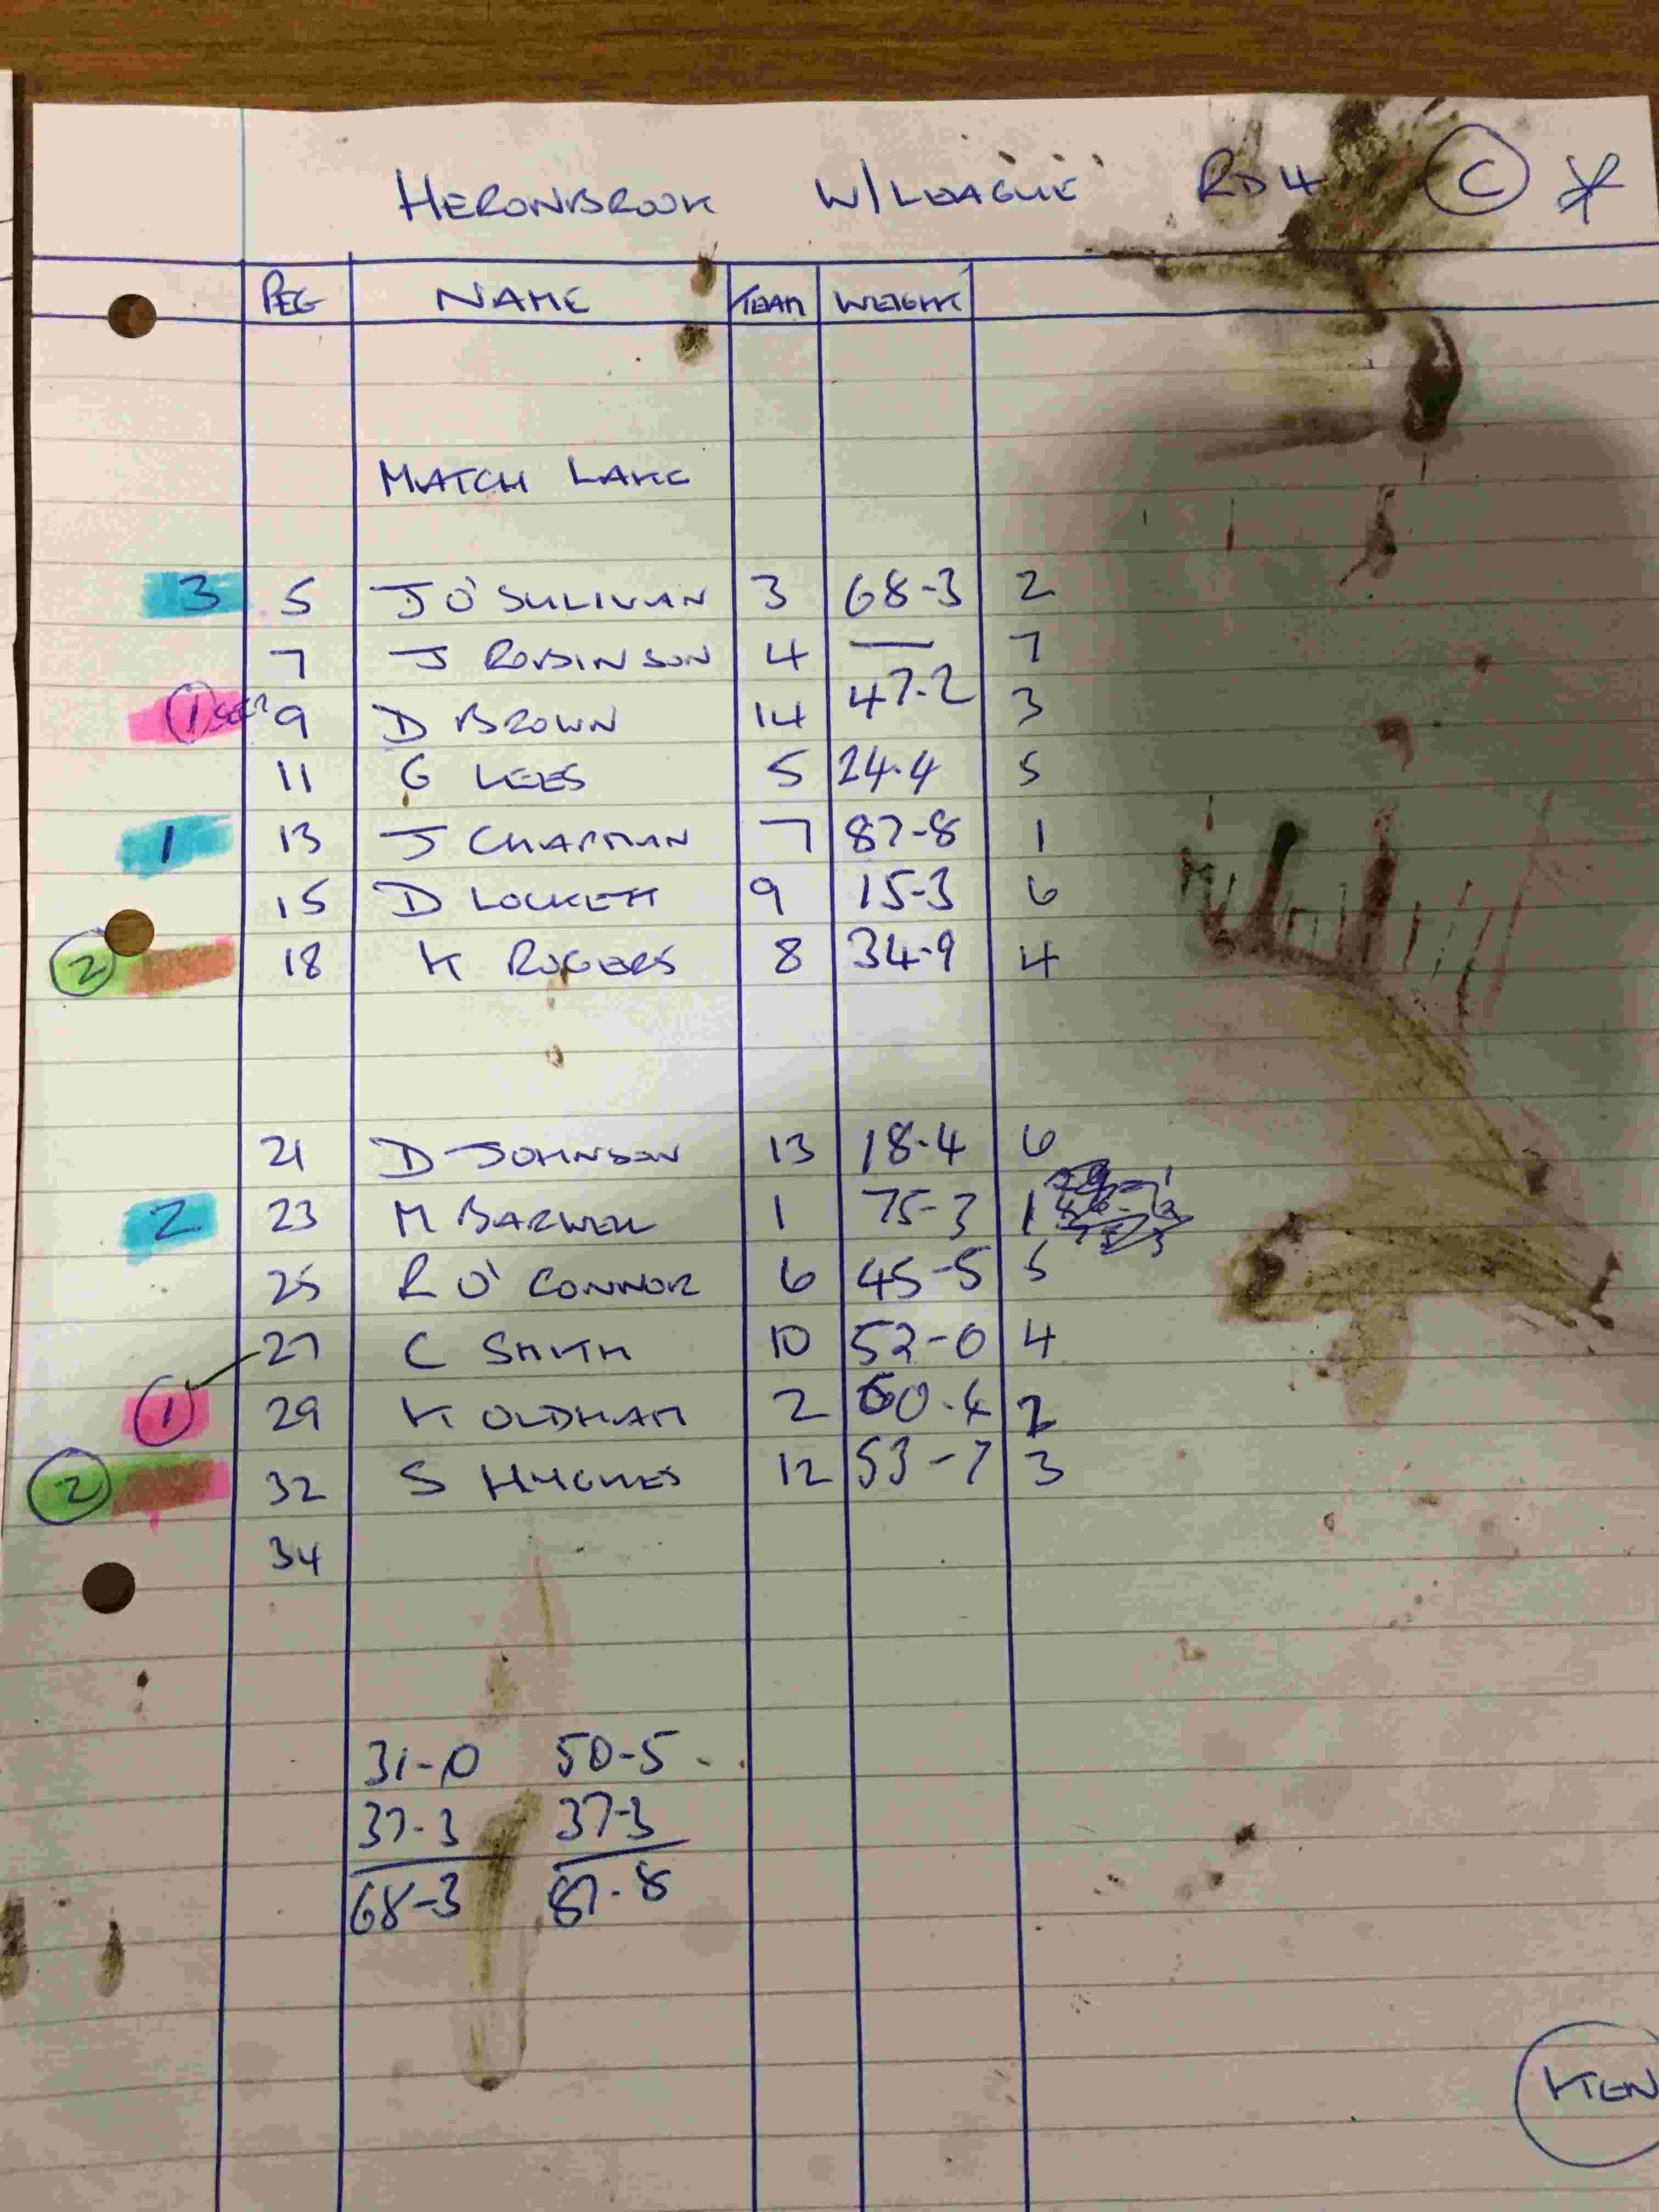 HERONBROOK W/LEAGUE RD 4 C
PEG NAME TEAM WEIGHT
MATCH LAKE
3 5 J O'SULIVAN 3 68-3 2
7 J ROBINSON 4 — 7
1 9 D BROWN 14 47-2 3
11 G LEES 5 24-4 5
1 13 J CHAPMAN 7 87-8 1
15 D LOCKETT 9 15-3 6
2 18 K ROGERS 8 34-9 4
21 D JOHNSON 13 18-4 6
2 23 M BARWELL 1 75-3 1
25 R O'CONNOR 6 45-5 5
27 C SMITH 10 52-0 4
1 29 K OLDHAM 2 60-4 2
2 32 S HUGHES 12 53-7 3
34
31-0 50-5
37-3 37-3
68-3 87-8
KEN